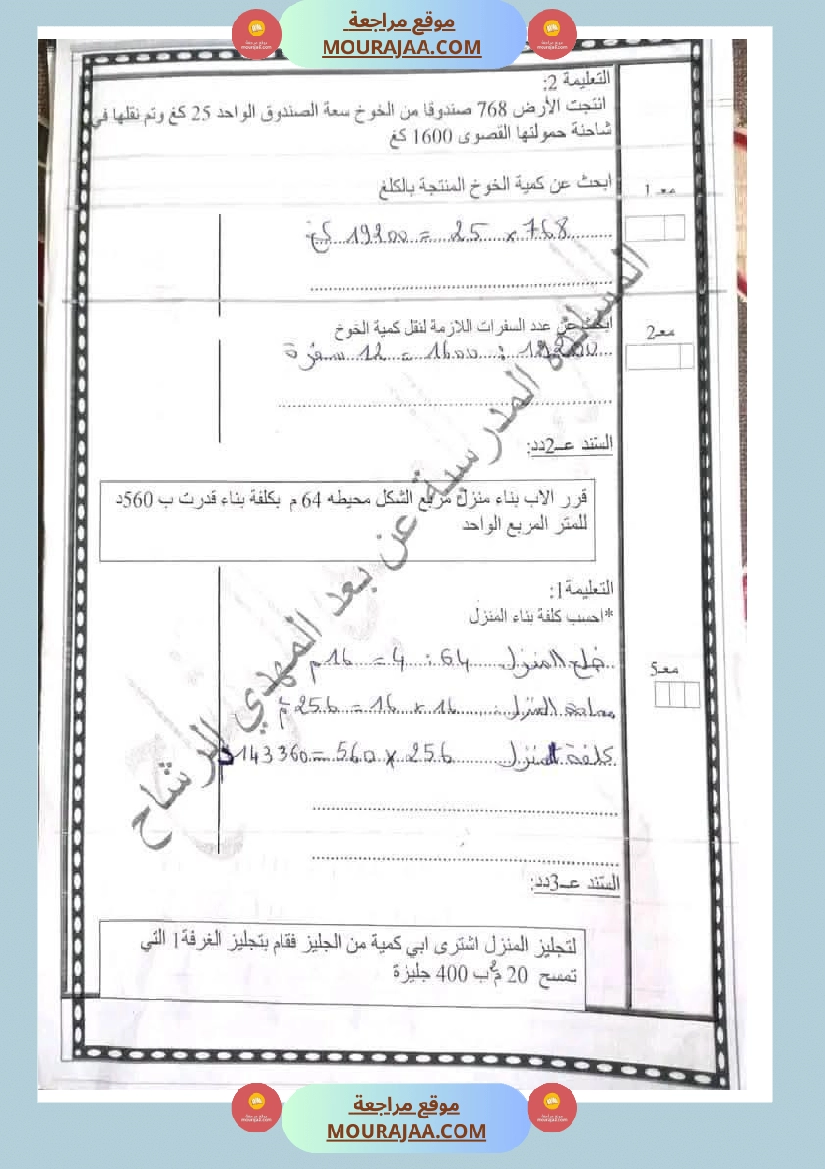 موقع مراجعة
MOURAJAA.COM
التعليمة 2:
انتجت الأرض 768 صندوقا من الخوخ سعة الصندوق الواحد 25 كغ وتم نقلها في
شاحنة حمولتها القصوى 1600 كغ
ابحث عن كمية الخوخ المنتجة بالكلغ
معـ 1
768 × 25 = 19200 كغ
ابحث عن عدد السفرات اللازمة لنقل كمية الخوخ
معـ2
19200 : 1600 = 12 سفرة
السند عــ2دد:
قرر الاب بناء منزل مربع الشكل محيطه 64 م بكلفة بناء قدرت ب 560د
للمتر المربع الواحد
التعليمة 1:
*احسب كلفة بناء المنزل
معـ5
ضلع المنزل 64 : 4 = 16 م
مساحة المنزل : 16 × 16 = 256 م²
كلفة المنزل 256 × 560 = 143360 د
السند عــ3دد:
لتجليز المنزل اشترى ابي كمية من الجليز فقام بتجليز الغرفة1 التي
تمسح 20 م² ب 400 جليزة
المساندة المدرسية عن بعد المهدي الرشاح
موقع مراجعة
MOURAJAA.COM